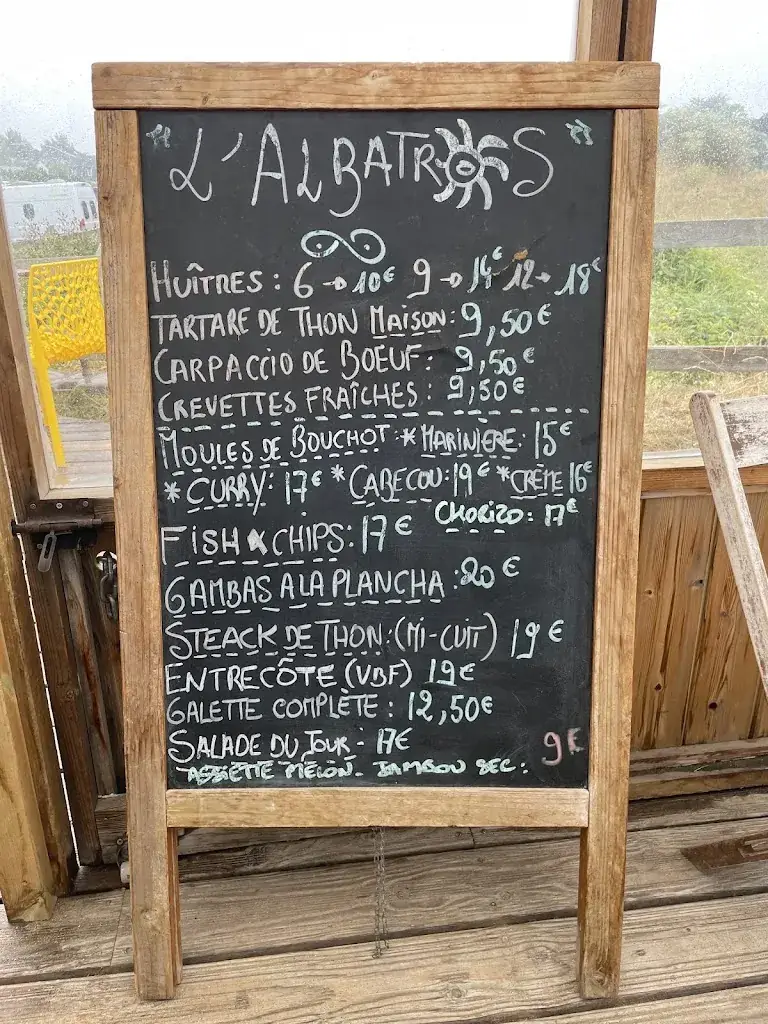 L'ALBATROS
HUÎTRES : 6 → 10€ 9 → 14€ 12 → 18€
TARTARE DE THON MAISON : 9,50€
CARPACCIO DE BOEUF : 9,50€
CREVETTES FRAÎCHES : 9,50€
MOULES DE BOUCHOT : * MARINIÈRE : 15€
* CURRY : 17€ * CABECOU : 19€ * CRÈME 16€
CHORIZO : 17€
FISH & CHIPS : 17€
GAMBAS A LA PLANCHA : 20€
STEACK DE THON : (MI-CUIT) 19€
ENTRECÔTE (VBF) 19€
GALETTE COMPLÈTE : 12,50€
SALADE DU JOUR - 17€
ASSIETTE MELON - JAMBON SEC : 9€